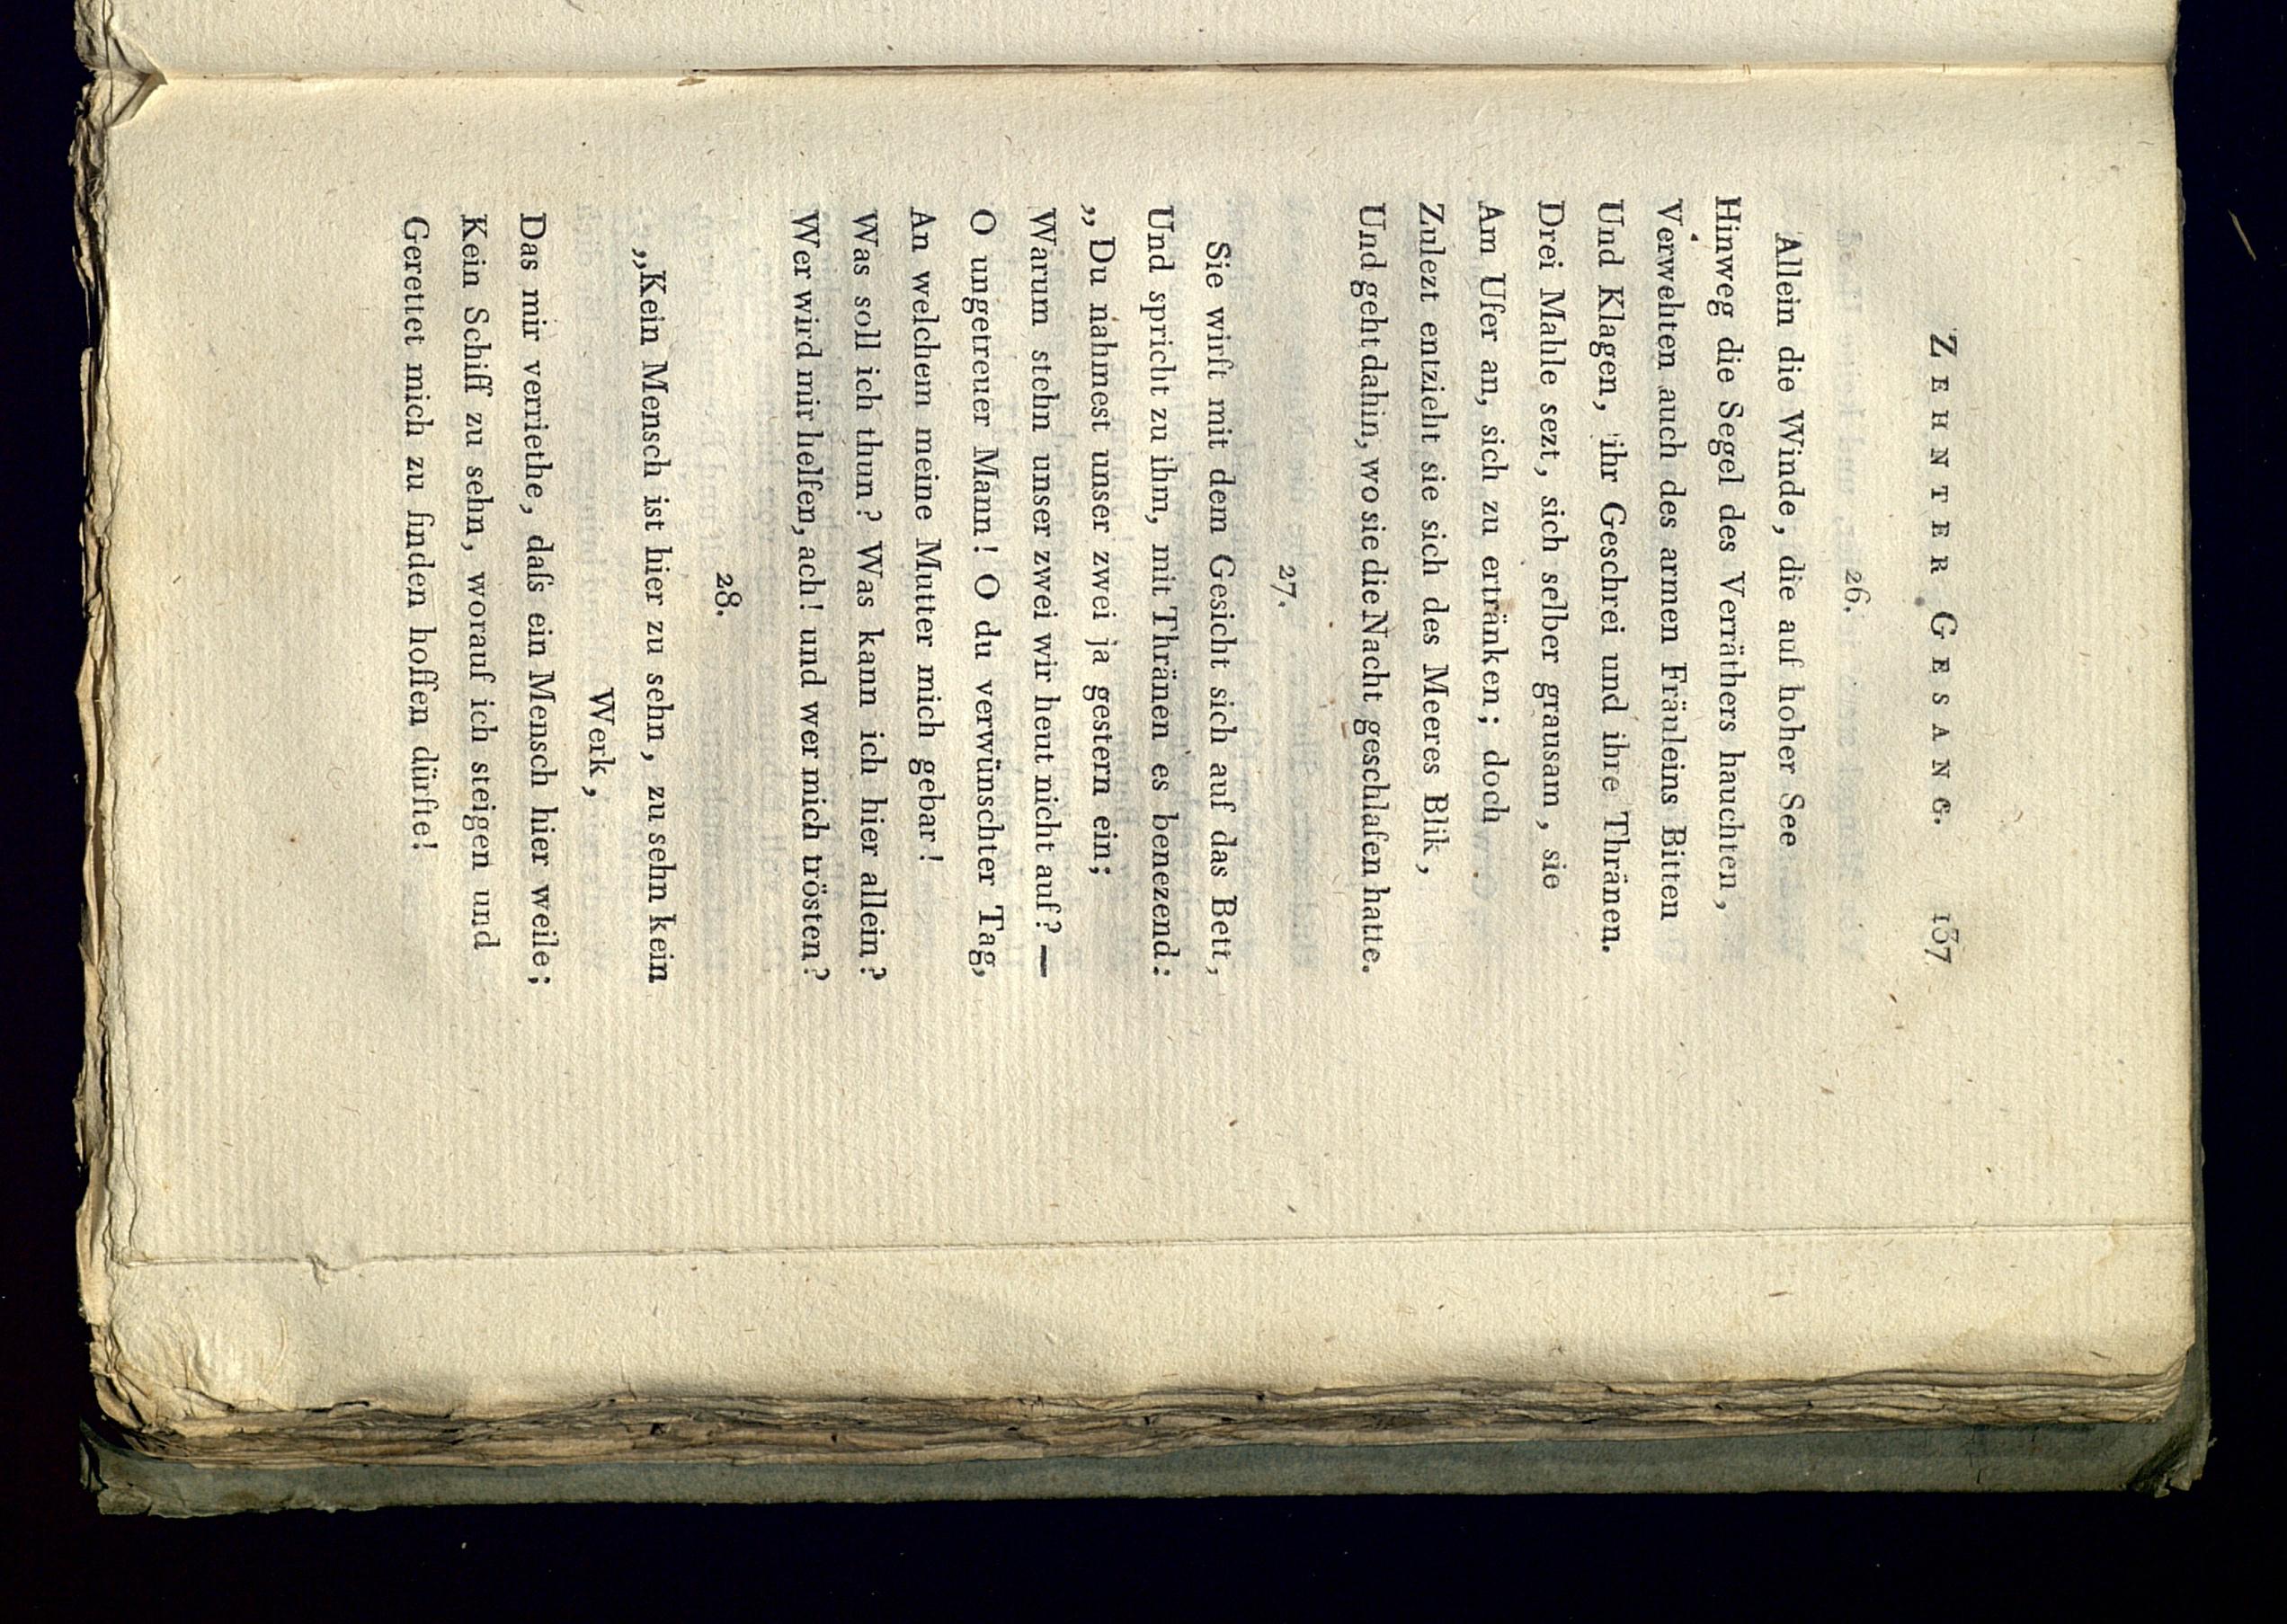 ZEHNTER GESANG. 137
26.
Allein die Winde, die auf hoher See
Hinweg die Segel des Verräthers hauchten,
Verwehten auch des armen Fräuleins Bitten
Und Klagen, ihr Geschrei und ihre Thränen.
Drei Mahle sezt, sich selber grausam, sie
Am Ufer an, sich zu ertränken; doch
Zulezt entzieht sie sich des Meeres Blik,
Und geht dahin, wo sie die Nacht geschlafen hatte.
27.
Sie wirft mit dem Gesicht sich auf das Bett,
Und spricht zu ihm, mit Thränen es benezend:
„Du nahmest unser zwei ja gestern ein;
Warum stehn unser zwei wir heut nicht auf? —
O ungetreuer Mann! O du verwünschter Tag,
An welchem meine Mutter mich gebar!
Was soll ich thun? Was kann ich hier allein?
Wer wird mir helfen, ach! und wer mich trösten?
28.
„Kein Mensch ist hier zu sehn, zu sehn kein
Werk,
Das mir verriethe, daſs ein Mensch hier weile;
Kein Schiff zu sehn, worauf ich steigen und
Gerettet mich zu finden hoffen dürfte!